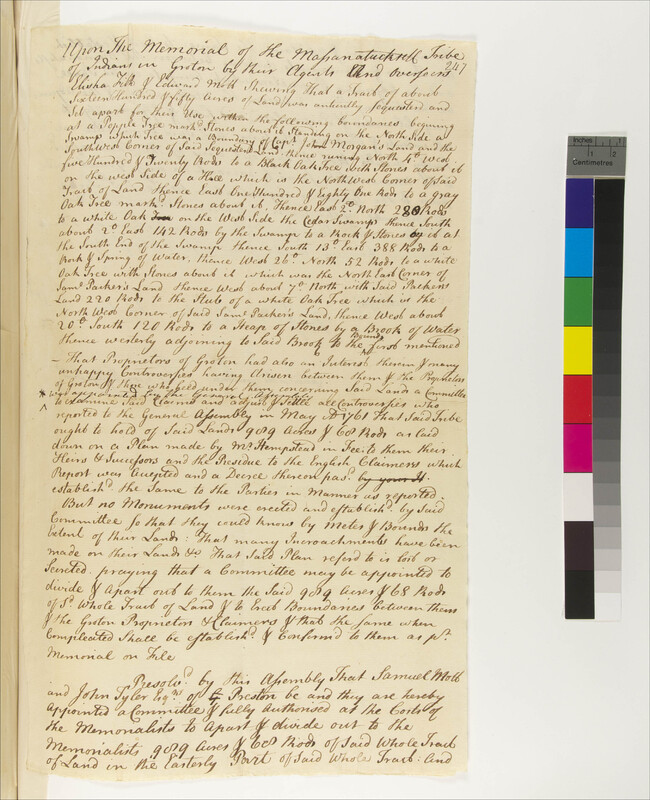 247
Upon The Memorial of the Massanatucksett Tribe
of Indians in Groton by their Agents and Overseers
Elisha Fitch & Edward Mott Shewing That a Tract of about
Sixteen Hundred & fifty Acres of Land was antiently sequestred and
Set apart for their Use within the following boundaries begining
at a Pepper Tree markd Stones about it Standing on the North Side a
Swamp which Tree was a Boundary of Capt John Morgan's Land and the
Southwest Corner of Said Sequestred Land thence runing North 4d West
five Hundred & Twenty Rods to a Black Oak Tree with Stones about it
on the west Side of a Hill which is the North West Corner of Said
Tract of Land thence East One Hundred & Eighty One Rods to a gray
Oak Tree markd Stones about it, thence East 2d North 280 Rods
to a white Oak on the West Side the Cedar Swamp thence South
about 2d East 142 Rods by the Swamp to a Rock & Stones by it at
the South End of the Swamp thence South 13d East 388 Rods to a
Rock & Spring of Water, thence West 26d North 52 Rods to a white
Oak Tree with Stones about it which was the North East Corner of
Saml Parker's Land thence West about 7d North with Said Parkers
Land 220 Rods to the Stub of a white Oak Tree which is the
North West Corner of Said Saml Parker's Land, thence West about
20d South 120 Rods to a Heap of Stones by a Brook of Water
thence westerly adjoining to Said Brook to the first mentioned Bounds
— That Proprietors of Groton had also an Interest therein & many
unhappy Controversies having Arisen between them & the Proprietors
of Groton & those who held under them concerning Said Land a Committee
* was appointed by the General Assembly
to Examine Said Claims and adjust & Settle all Controversies who
reported to the General Assembly in May AD 1761 That Said Tribe
ought to hold of Said Lands 989 Acres & 68 Rods as laid
down on a Plan made by Mr Hempstead in Fee to them their
Heirs & Successors and the Residue to the English Claimers which
Report was Accepted and a Decree thereon pasd by your H
establishd the Same to the Parties in Manner as reported.
But no Monuments were erected and establishd by Said
Committee So that they could know by Meters & Bounds the
Extent of their Lands: That many Incroachments have been
made on their Lands &c That Said Plan referd to is lost or
Secreted praying that a Committee may be appointed to
divide & Apart out to them the Said 989 Acres & 68 Rods
of sd Whole Tract of Land & to Erect Boundaries between them
& the Groton Proprietors & Claimers & that the Same when
Compleated Shall be establishd & Confirmd to them as pr
Memorial on File
Resolvd by this Assembly That Samuel Mott
and John Tyler Esqrs of Preston be and they are hereby
Appointed a Committee & fully Authorised at the Costs of
the Memorialists to Apart & divide out to the
Memorialists 989 Acres & 68 Rods of Said Whole Tract
of Land in the Easterly Part of Said Whole Tract: And